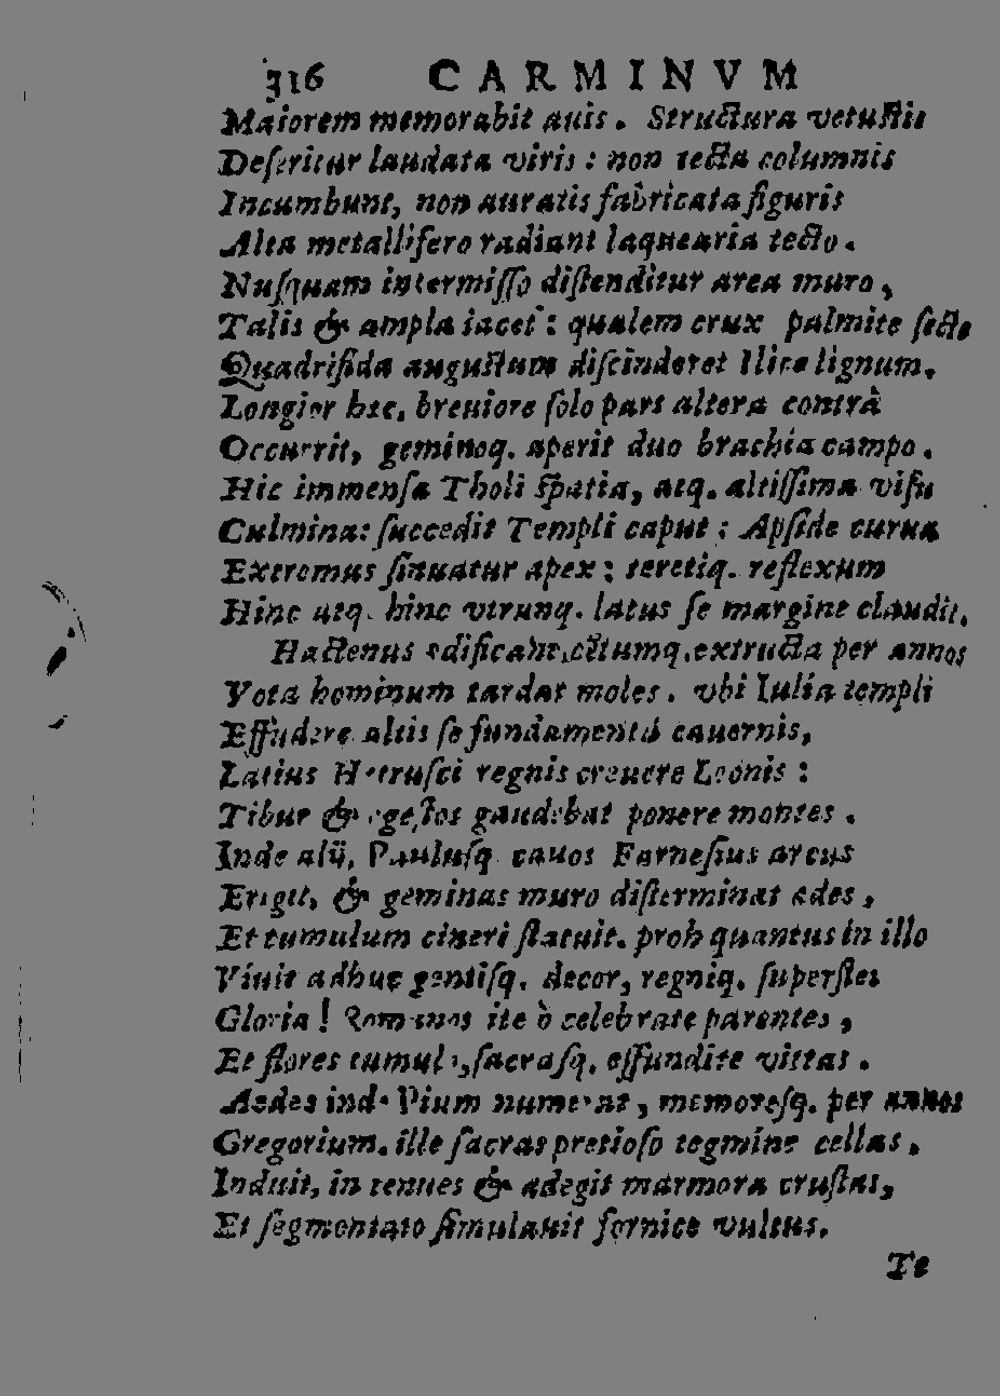 316 CARMINVM
Maiorem memorabit auis. Structura vetustis
Deseritur laudata viris: non tecta columnis
Incumbunt, non auratis fabricata figuris
Alta metallifero radiant laquearia tecto.
Nusquam intermisso distenditur area muro,
Talis & ampla iacet: qualem crux palmite secto
Quadrifida augustum discinderet Ilice lignum.
Longior hæc, breuiore solo pars altera contrà
Occurrit, geminoq. aperit duo brachia campo.
Hic immensa Tholi spatia, atq. altissima visu
Culmina: succedit Templi caput: Apside curua
Extremus sinuatur apex: teretiq. reflexum
Hinc atq. hinc vtrunq. latus se margine claudit.
Hactenus ædificant, cœtumq. extructa per annos
Vota hominum tardat moles. vbi Iulia templi
Effudere altis se fundamenta cauernis,
Latius Hetrusci regnis creuere Leonis:
Tibur & egestos gaudebat ponere montes.
Inde alij, Paulusq. cauos Farnesius arcus
Erigit, & geminas muro disterminat ædes,
Et tumulum cineri statuit. proh quantus in illo
Viuit adhuc gentisq. decor, regniq. superstes
Gloria! Romanos ite ò celebrate parentes,
Et flores tumulo, sacrasq. effundite vittas.
Aedes inde Pium numerat, memoresq. per annos
Gregorium. ille sacras pretioso tegmine cellas.
Induit, in tenues & adegit marmora crustas,
Et segmentato simulauit fornice vultus.
Te